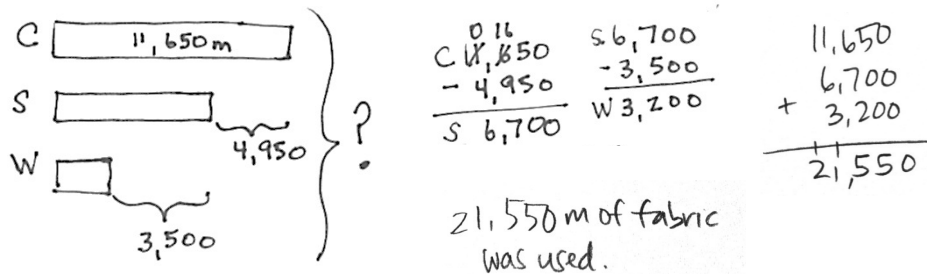 C 11,650 m
S
4,950
W
3,500
?
0 16
C 11,650
- 4,950
S 6,700
S 6,700
- 3,500
W 3,200
11,650
6,700
+ 3,200
21,550
21,550 m of fabric
was used.